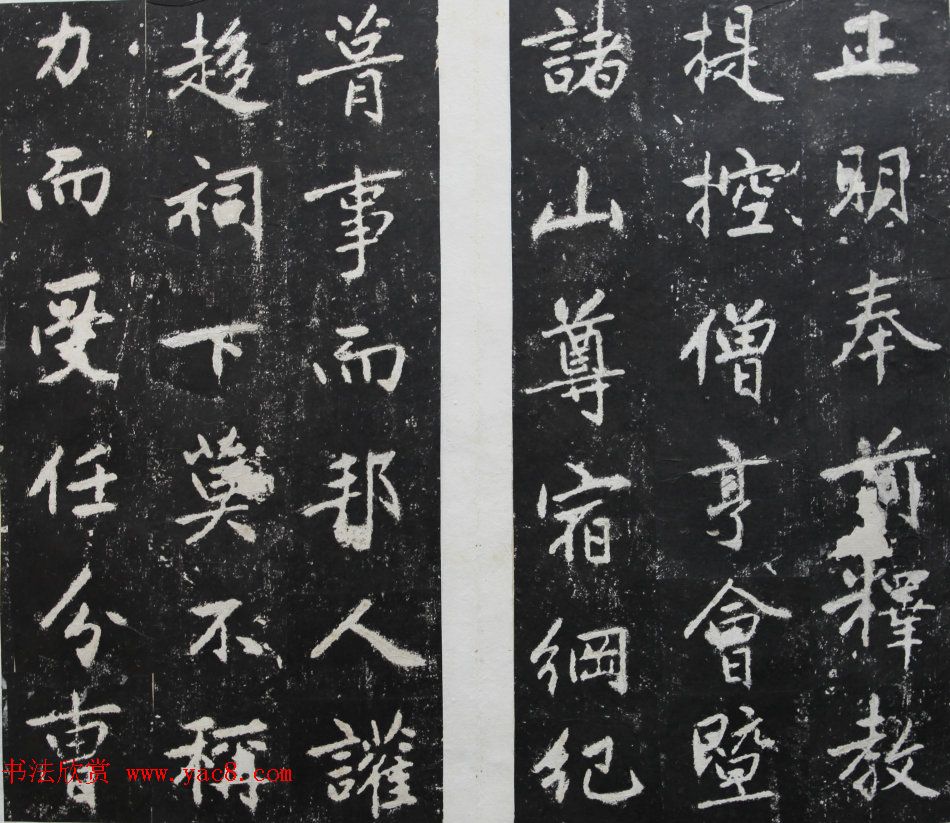 正明奉前釋教
提控僧亨會暨
諸山尊宿綱紀
事而邦人讙
趍祠下莫不稱
力而受任分曹
书法欣赏 www.yac8.com